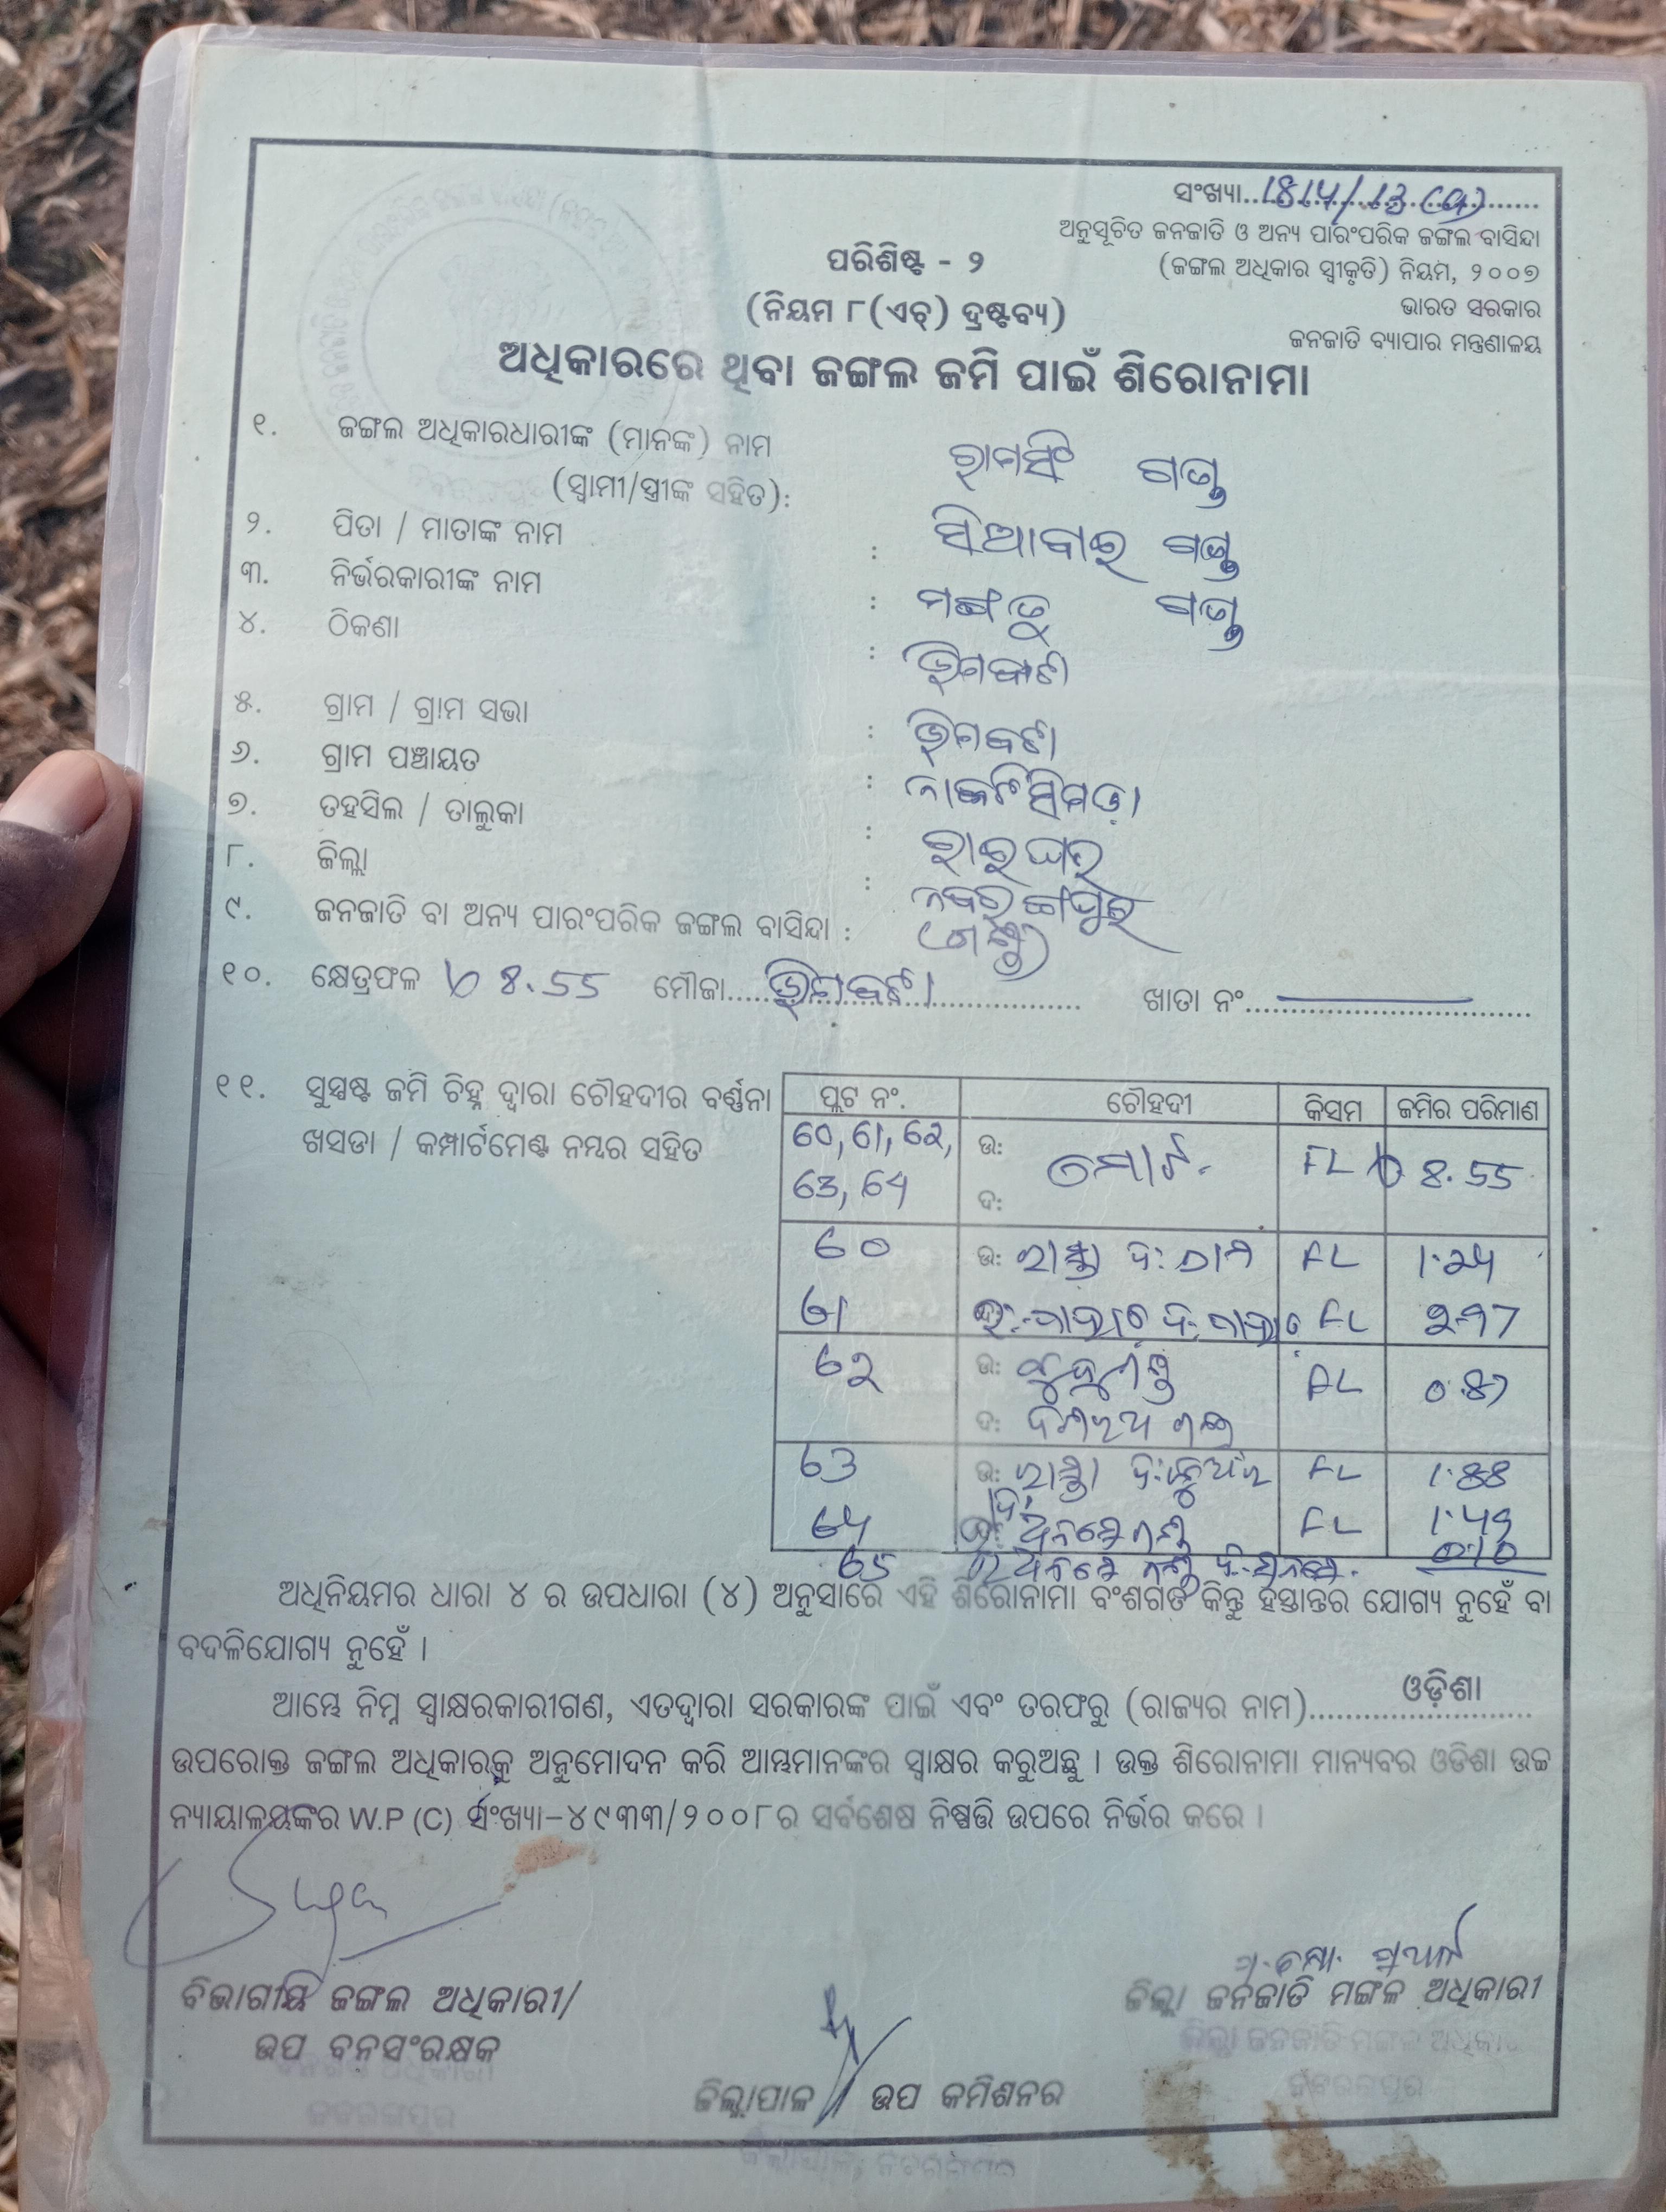 ସଂଖ୍ୟା..1814/13 (ଏ)
ଅନୁସୂଚିତ ଜନଜାତି ଓ ଅନ୍ୟ ପାରଂପରିକ ଜଙ୍ଗଲ ବାସିନ୍ଦା
ପରିଶିଷ୍ଟ - ୨
(ଜଙ୍ଗଲ ଅଧିକାର ସ୍ୱୀକୃତି) ନିୟମ, ୨୦୦୭
(ନିୟମ ୮(ଏଚ୍) ଦ୍ରଷ୍ଟବ୍ୟ)
ଭାରତ ସରକାର
ଜନଜାତି ବ୍ୟାପାର ମନ୍ତ୍ରଣାଳୟ
ଅଧିକାରରେ ଥିବା ଜଙ୍ଗଲ ଜମି ପାଇଁ ଶିରୋନାମା
୧. ଜଙ୍ଗଲ ଅଧିକାରଧାରୀଙ୍କ (ମାନଙ୍କ) ନାମ ରାମସିଂ ଗଣ୍ଡ
(ସ୍ୱାମୀ/ସ୍ତ୍ରୀଙ୍କ ସହିତ):
୨. ପିତା / ମାତାଙ୍କ ନାମ : ସିଆବାଇ ଗଣ୍ଡ
୩. ନିର୍ଭରକାରୀଙ୍କ ନାମ : ମଙ୍ଗତୁ ଗଣ୍ଡ
୪. ଠିକଣା : ଭିମକଟା
୫. ଗ୍ରାମ / ଗ୍ରାମ ସଭା : ଭିମକଟା
୬. ଗ୍ରାମ ପଞ୍ଚାୟତ : ନାକଟିସିମଡ଼ା
୭. ତହସିଲ / ତାଲୁକା : ରାଇଘର
୮. ଜିଲ୍ଲା : ନବରଙ୍ଗପୁର
୯. ଜନଜାତି ବା ଅନ୍ୟ ପାରଂପରିକ ଜଙ୍ଗଲ ବାସିନ୍ଦା : ଗଣ୍ଡ
୧୦. କ୍ଷେତ୍ରଫଳ 8.55 ମୌଜା.. ଭିମକଟା ଖାତା ନଂ..
୧୧. ସୁସ୍ପଷ୍ଟ ଜମି ଚିହ୍ନ ଦ୍ୱାରା ଚୌହଦୀର ବର୍ଣ୍ଣନା
ଖସଡା / କମ୍ପାର୍ଟମେଣ୍ଟ ନମ୍ବର ସହିତ
ପ୍ଲଟ ନଂ. ଚୌହଦୀ କିସମ ଜମିର ପରିମାଣ
60, 61, 62, ଉ: FL 8.55
63, 64 ଦ:
60 ଉ: ରାସ୍ତା ଦ: FL 1.24
61 FL
62 ଉ: FL
ଦ:
63 ଉ: ରାସ୍ତା FL
64 FL
65
ଅଧିନିୟମର ଧାରା ୪ ର ଉପଧାରା (୪) ଅନୁସାରେ ଏହି ଶିରୋନାମା ବଂଶଗତ କିନ୍ତୁ ହସ୍ତାନ୍ତର ଯୋଗ୍ୟ ନୁହେଁ ବା
ବଦଳିଯୋଗ୍ୟ ନୁହେଁ ।
ଆମ୍ଭେ ନିମ୍ନ ସ୍ୱାକ୍ଷରକାରୀଗଣ, ଏତଦ୍ୱାରା ସରକାରଙ୍କ ପାଇଁ ଏବଂ ତରଫରୁ (ରାଜ୍ୟର ନାମ)..ଓଡ଼ିଶା
ଉପରୋକ୍ତ ଜଙ୍ଗଲ ଅଧିକାରକୁ ଅନୁମୋଦନ କରି ଆମ୍ଭମାନଙ୍କର ସ୍ୱାକ୍ଷର କରୁଅଛୁ । ଉକ୍ତ ଶିରୋନାମା ମାନ୍ୟବର ଓଡିଶା ଉଚ୍ଚ
ନ୍ୟାୟାଳୟଙ୍କର W.P (C) ସଂଖ୍ୟା-୪୯୩୩/୨୦୦୮ର ସର୍ବଶେଷ ନିଷ୍ପତ୍ତି ଉପରେ ନିର୍ଭର କରେ ।
ବିଭାଗୀୟ ଜଙ୍ଗଲ ଅଧିକାରୀ/
ଉପ ବନସଂରକ୍ଷକ
ଜିଲ୍ଲାପାଳ / ଉପ କମିଶନର
ଜିଲ୍ଲା ଜନଜାତି ମଙ୍ଗଳ ଅଧିକାରୀ
ଜିଲ୍ଲା ଜନଜାତି ମଙ୍ଗଳ ଅଧିକାରୀ
ନବରଙ୍ଗପୁର